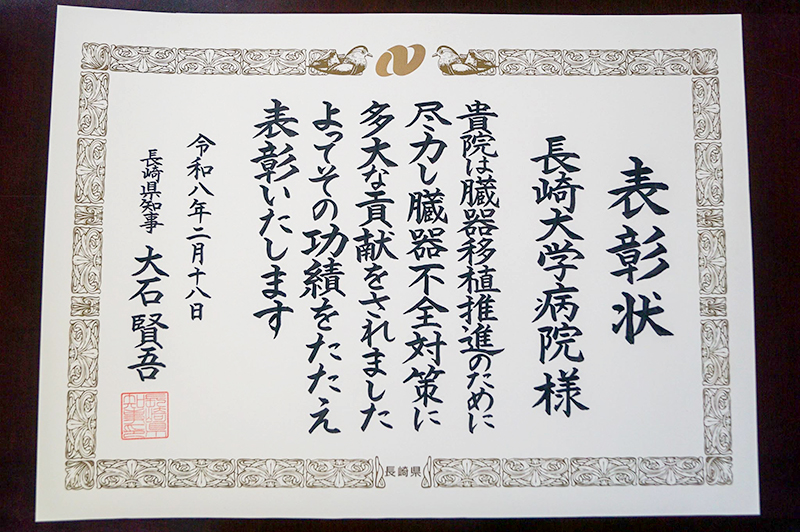 表彰状
長崎大学病院様
貴院は臓器移植推進のために
尽力し臓器不全対策に
多大な貢献をされました
よってその功績をたたえ
表彰いたします
令和八年二月十八日
長崎県知事 大石賢吾
長崎県